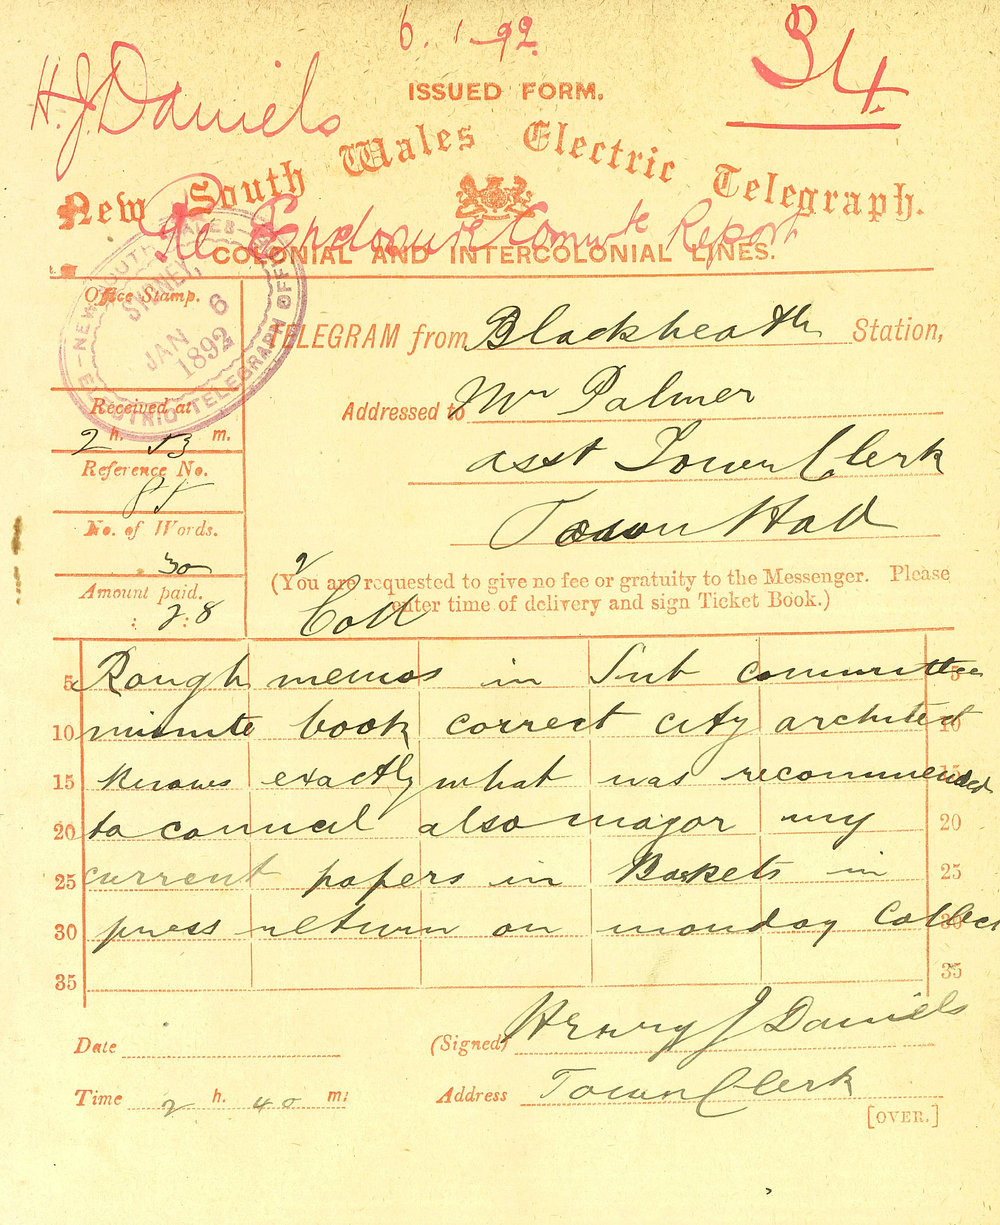 6.1.92
H.J. Daniels
34
ISSUED FORM.
New South Wales Electric Telegraph.
re Enclosure Comtte Report
COLONIAL AND INTERCOLONIAL LINES.
NEW SOUTH WALES
ELECTRIC TELEGRAPH OFFICE
SYDNEY,
JAN 6
1892
Office Stamp.
TELEGRAM from Blackheath Station,
Received at
2 h. 13 m.
Addressed to Mr Palmer
Reference No.
asst Town Clerk
No. of Words.
Town Hall
30
2
Amount paid.
: 2:8
(You are requested to give no fee or gratuity to the Messenger. Please
enter time of delivery and sign Ticket Book.)
Coll
5 Rough memos in Sub committee 5
10 minute book correct city architect 10
15 Knows exactly what was recommended 15
20 to council also mayor my 20
25 current papers in Baskets in 25
30 press return on monday Collect 30
35 35
Date
(Signed) Henry J Daniels
Time 2 h. 40 m:
Address Town Clerk
[OVER.]